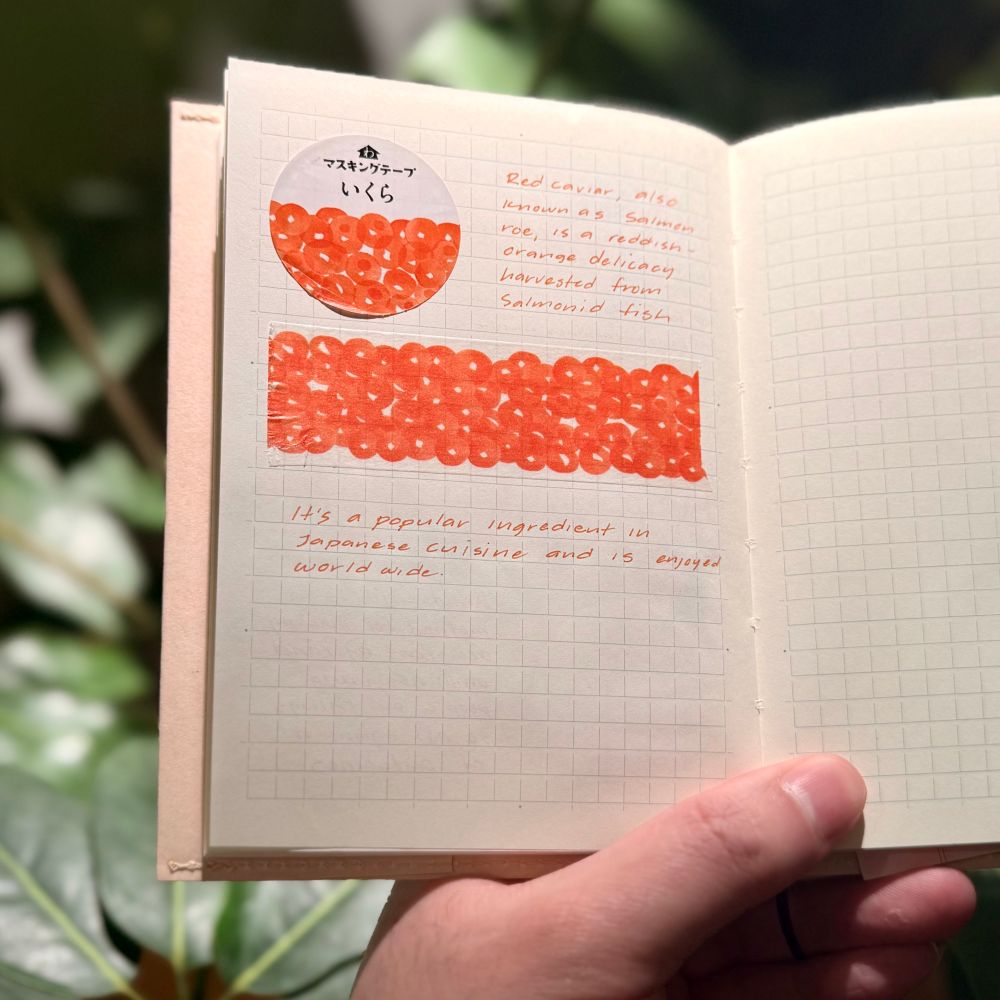 わ
マスキングテープ
いくら
Red caviar, also
known as Salmon
roe, is a reddish-
orange delicacy
harvested from
Salmonid fish
It's a popular ingredient in
Japanese cuisine and is enjoyed
world wide.